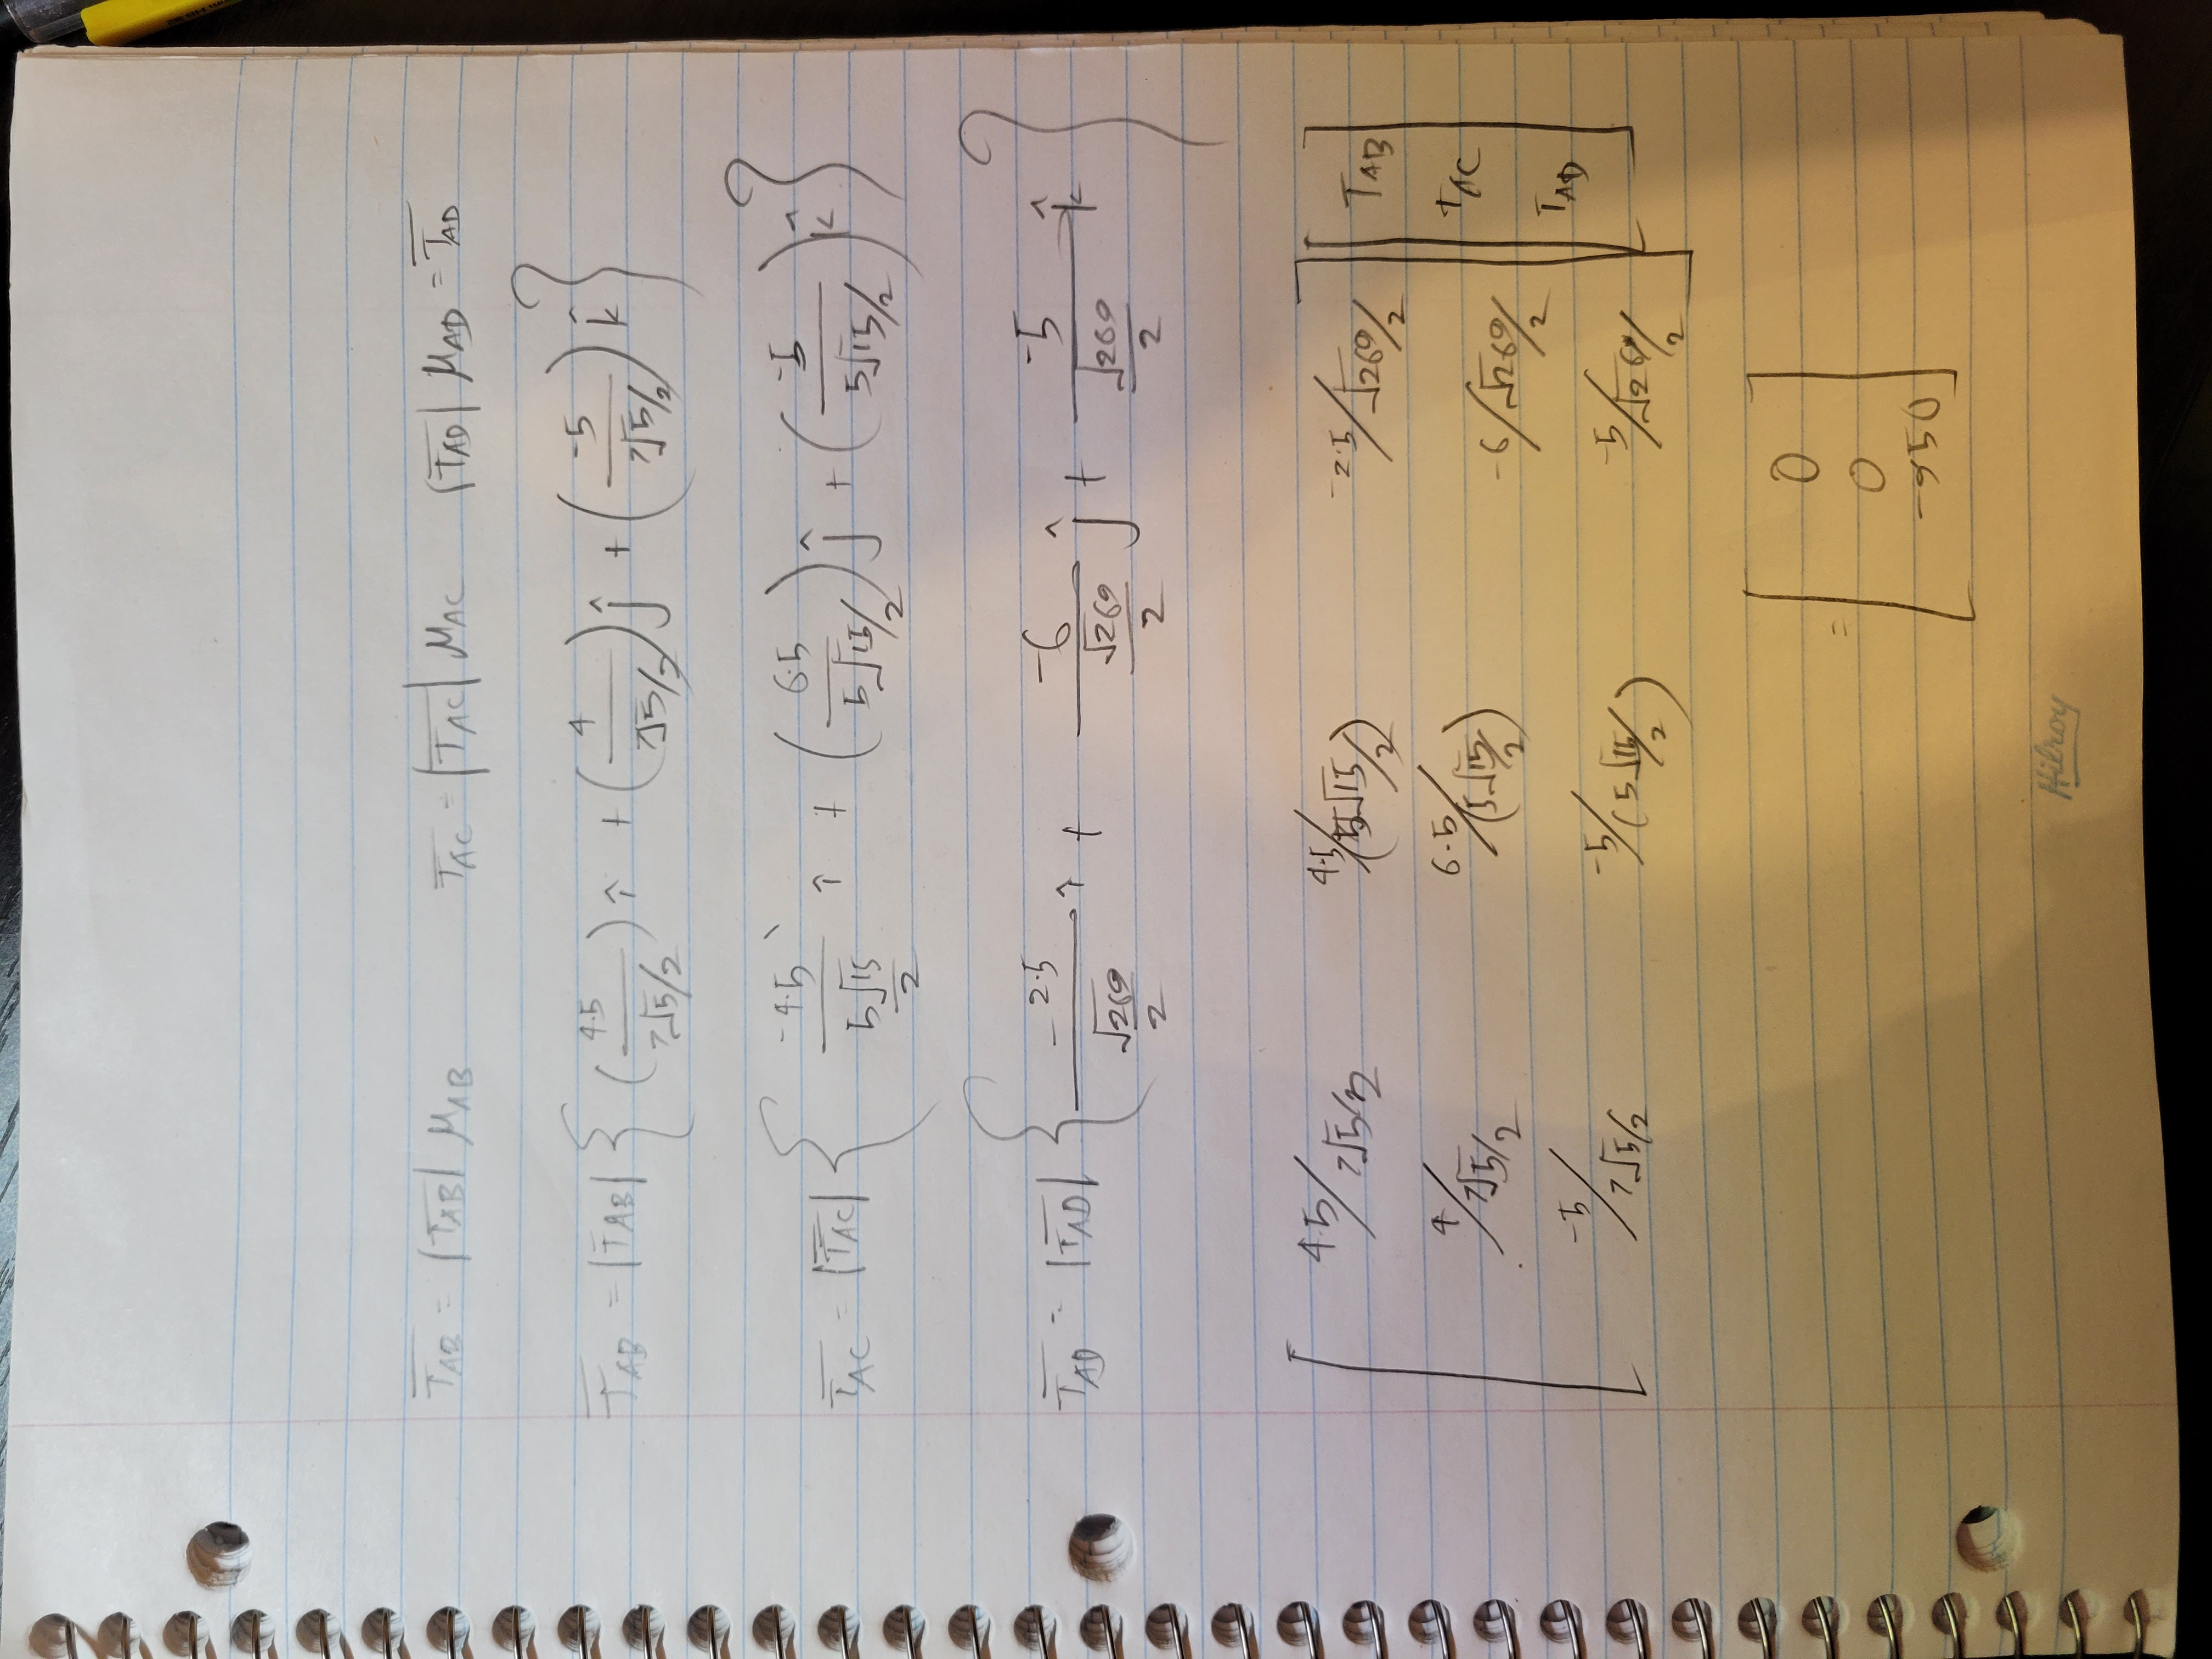 T̅AB = |T̅AB| μAB    T̅AC = |T̅AC| μAC    |T̅AD| μAD = T̅AD
T̅AB = |T̅AB| { (4.5 / 7√5/2) î + (4 / 7√5/2) ĵ + (-5 / 7√5/2) k̂ }
T̅AC = |T̅AC| { -4.5 / (5√15/2) î + (6.5 / 5√15/2) ĵ + (-5 / 5√15/2) k̂ }
T̅AD = |T̅AD| { -2.5 / (√269/2) î + -6 / (√269/2) ĵ + -5 / (√269/2) k̂ }
[ 4.5/7√5/2    4.5/(5√15/2)    -2.5/√269/2 ] [ TAB ]
[ 4/7√5/2    6.5/(5√15/2)    -6/√269/2 ] [ TAC ]
[ -5/7√5/2    -5/(5√15/2)    -5/√269/2 ] [ TAD ]
= [ 0
0
50 ]
Hilroy